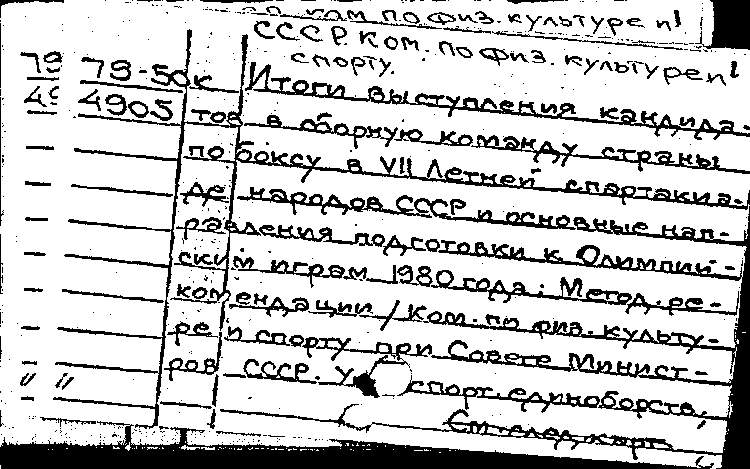 ком по физ. культуре и
СССР. Ком. по физ. культуре и
спорту.
79 79-50к Итоги выступления кандида-
49 4905 тов в сборную команду страны
по боксу в VII Летней спартакиа-
де народов СССР и основные нап-
равления подготовки к Олимпий-
ским играм 1980 года: Метод. ре-
комендации / Ком. по физ. культу-
ре и спорту при Совете Минист-
ров СССР. У спорт. единоборств,
См. след. карт.